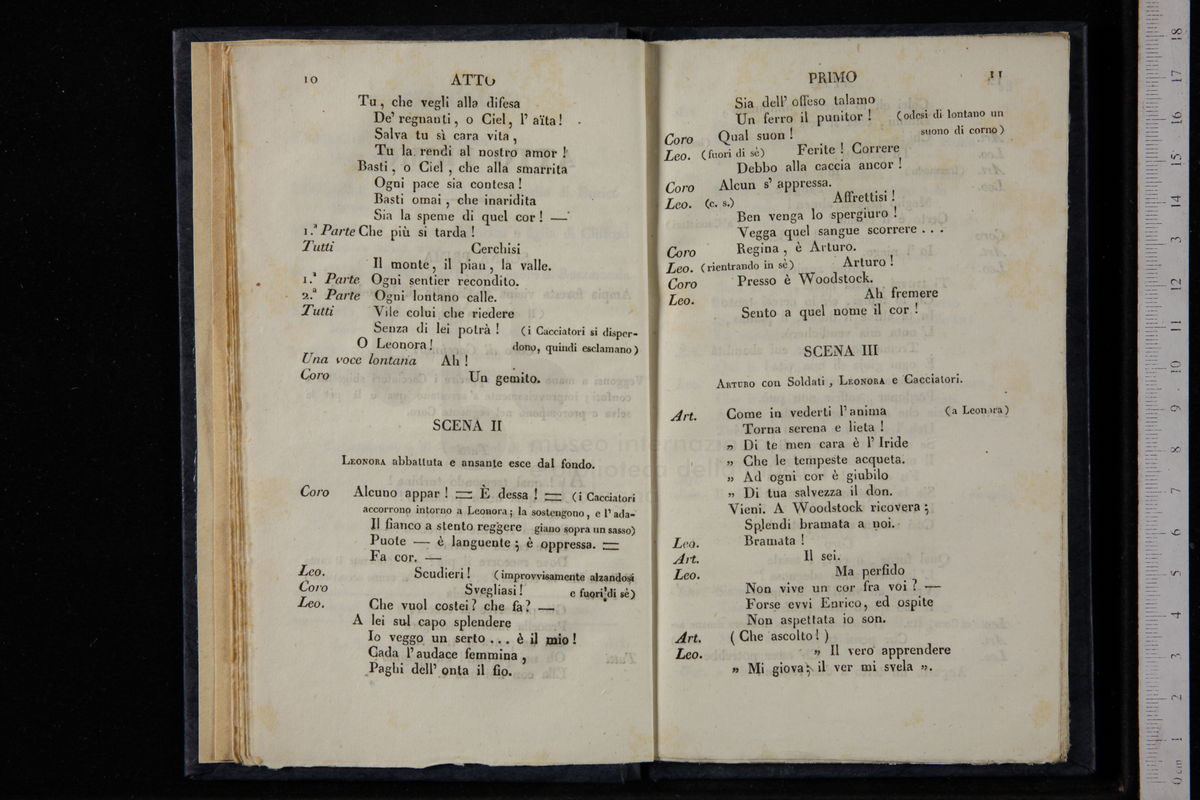 10 ATTO
Tu, che vegli alla difesa
De' regnanti, o Ciel, l' aïta!
Salva tu sì cara vita,
Tu la rendi al nostro amor!
Basti, o Ciel, che alla smarrita
Ogni pace sia contesa!
Basti omai, che inaridita
Sia la speme di quel cor! —
1.ª Parte Che più si tarda!
Tutti Cerchisi
Il monte, il pian, la valle.
1.ª Parte Ogni sentier recondito.
2.ª Parte Ogni lontano calle.
Tutti Vile colui che riedere
Senza di lei potrà! (i Cacciatori si disper-
O Leonora! dono, quindi esclamano)
Una voce lontana Ah!
Coro Un gemito.
SCENA II
LEONORA abbattuta e ansante esce dal fondo.
Coro Alcuno appar! = È dessa! = (i Cacciatori
accorrono intorno a Leonora; la sostengono, e l' ada-
Il fianco a stento reggere giano sopra un sasso)
Puote — è languente; è oppressa. =
Fa cor. —
Leo. Scudieri! (improvvisamente alzandosi
Coro Svegliasi! e fuori di sè)
Leo. Che vuol costei? che fa? —
A lei sul capo splendere
Io veggo un serto... è il mio!
Cada l' audace femmina,
Paghi dell' onta il fio.
PRIMO 11
Sia dell' offeso talamo
Un ferro il punitor! (odesi di lontano un
Coro Qual suon! suono di corno)
Leo. (fuori di sè) Ferite! Correre
Debbo alla caccia ancor!
Coro Alcun s' appressa.
Leo. (c. s.) Affrettisi!
Ben venga lo spergiuro!
Vegga quel sangue scorrere...
Coro Regina, è Arturo.
Leo. (rientrando in sè) Arturo!
Coro Presso è Woodstock.
Leo. Ah fremere
Sento a quel nome il cor!
SCENA III
ARTURO con Soldati, LEONORA e Cacciatori.
Art. Come in vederti l' anima (a Leonora)
Torna serena e lieta!
„ Di te men cara è l' Iride
„ Che le tempeste acqueta.
„ Ad ogni cor è giubilo
„ Di tua salvezza il don.
Vieni. A Woodstock ricovera;
Splendi bramata a noi.
Leo. Bramata!
Art. Il sei.
Leo. Ma perfido
Non vive un cor fra voi? —
Forse evvi Enrico, ed ospite
Non aspettata io son.
Art. (Che ascolto!)
Leo. „ Il vero apprendere
„ Mi giova; il ver mi svela ».
museo internazi
0 cm 1 2 3 4 5 6 7 8 9 10 11 12 13 14 15 16 17 18